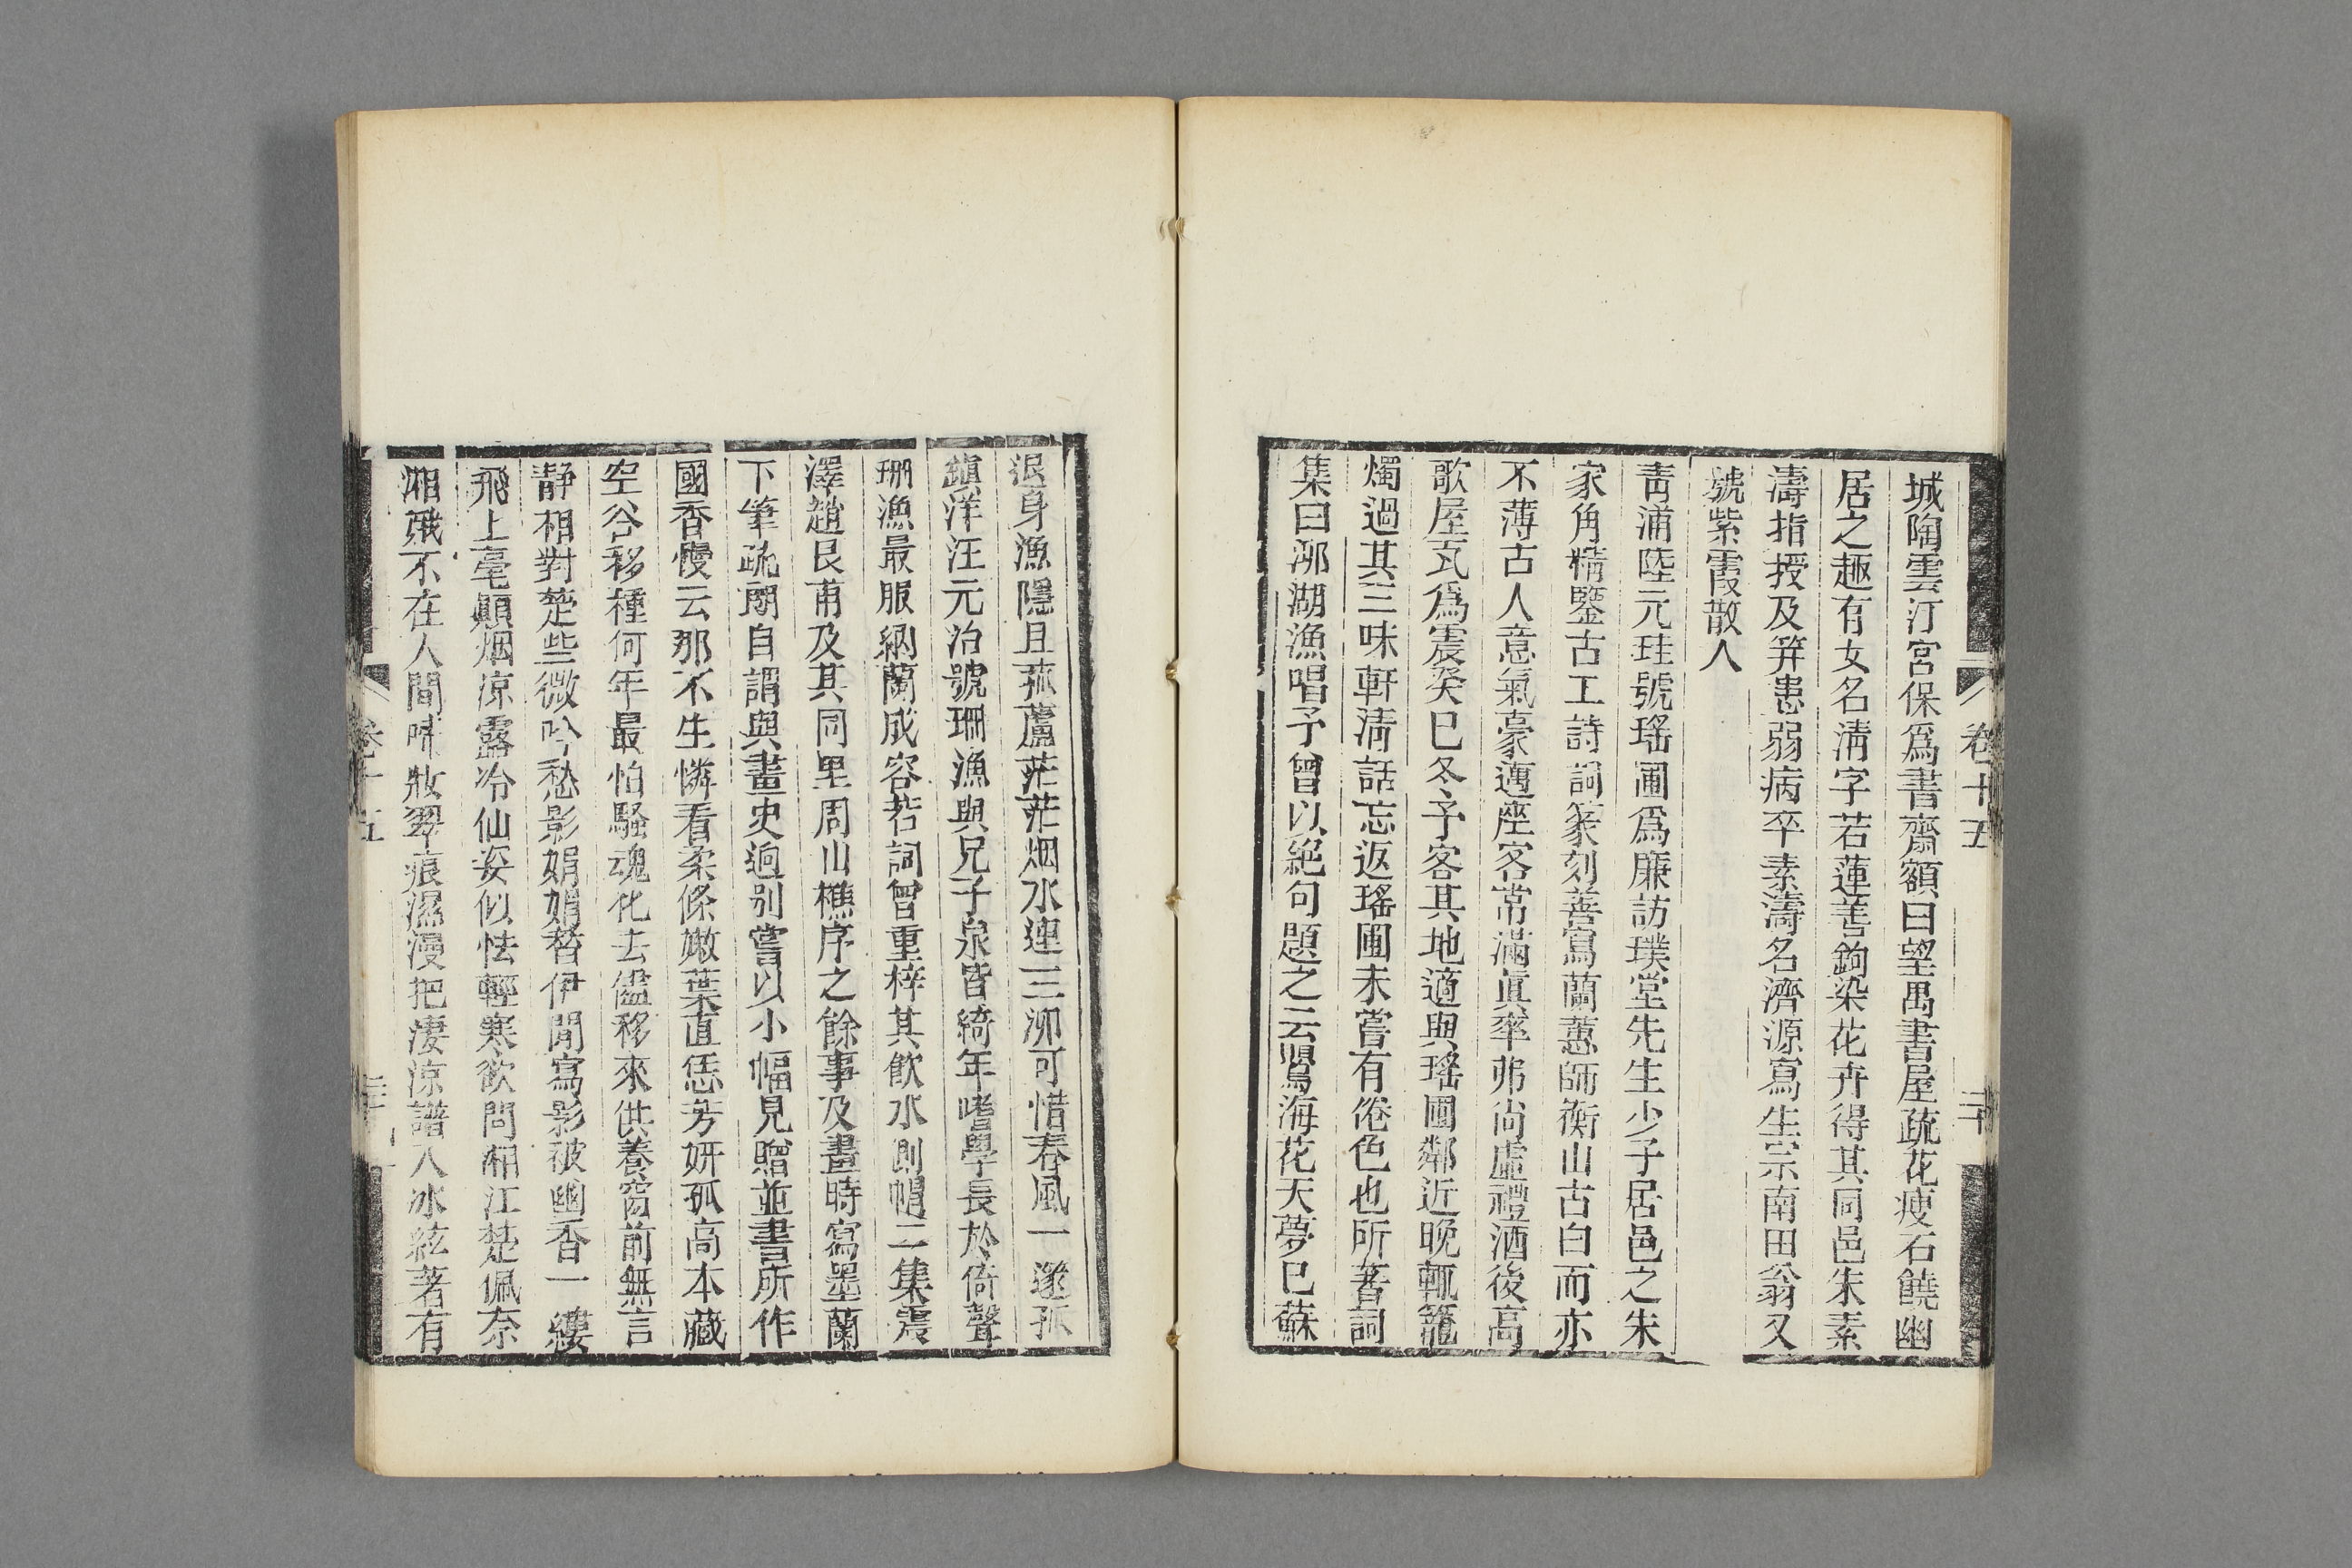 城陶雲汀宮保爲書齋額曰望禺書屋疏花瘦石饒幽
居之趣有女名淸字若蓮善鉤染花卉得其同邑朱素
濤指授及笄患弱病卒素濤名濟源寫生宗南田翁又
號紫霞散人
靑浦陸元珪號瑤圃爲廉訪璞堂先生少子居邑之朱
家角精鑒古工詩詞篆刻善寫蘭蕙師衡山古白而亦
不薄古人意氣豪邁座客常滿眞率弗尙虛禮酒後高
歌屋瓦爲震癸巳冬予客其地適與瑤圃鄰近晚輒籠
燭過其三味軒淸話忘返瑤圃未嘗有倦色也所著詞
集曰泖湖漁唱予曾以絕句題之云鷽海花天夢已蘇
退身漁隱且菰蘆茫茫烟水連三泖可惜春風一邃孤
鎭洋汪元治號珊漁與兄子泉皆綺年嗜學長於倚聲
珊漁最服納蘭成容若詞曾重梓其飮水側帽二集震
澤趙艮甫及其同里周山樵序之餘事及畫時寫墨蘭
下筆疏闊自謂與畫史逈別嘗以小幅見贈並書所作
國香慢云那不生憐看柔條嫩葉直恁芳妍孤高本藏
空谷移種何年最怕騷魂化去儘移來供養窗前無言
靜相對楚些微吟愁影娟娟替伊閒寫影被幽香一縷
飛上毫顚烟凉露冷仙姿似怯輕寒欲問湘江楚佩奈
湘娥不在人間啼妝翠痕濕漫把淒凉譜入冰絃著有
卷十五
卷十五